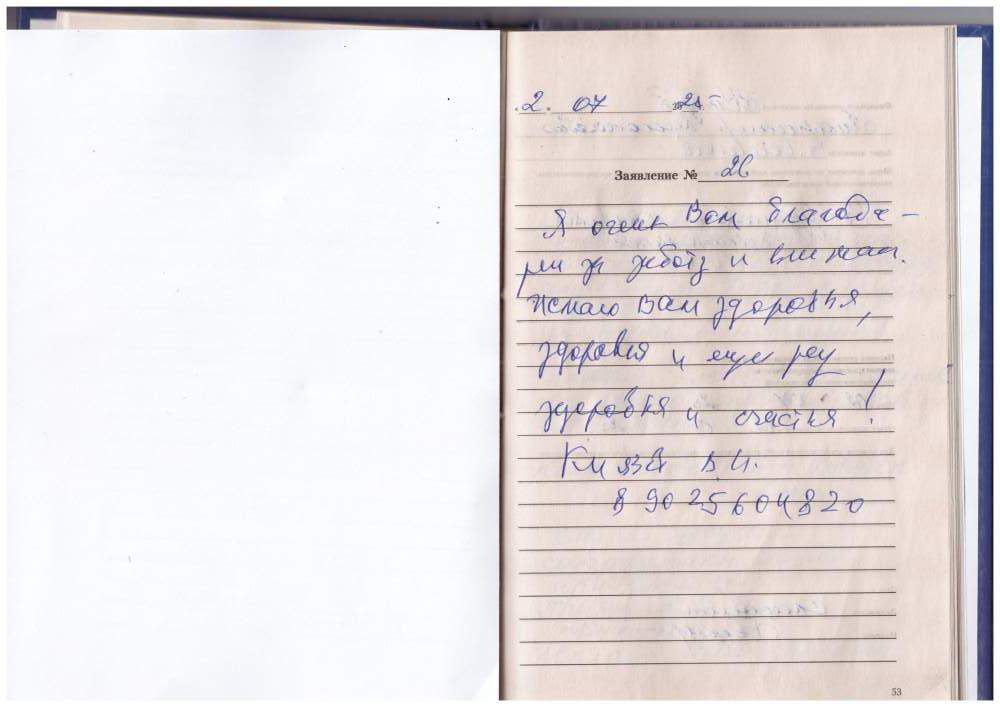 2. 07 20 г.
Заявление № 26
Я очень Вам благода-
рна за заботу и вниман.
Желаю Вам здоровья,
здоровья и еще раз
здоровья и счастья!
В.И.
89025604820
53